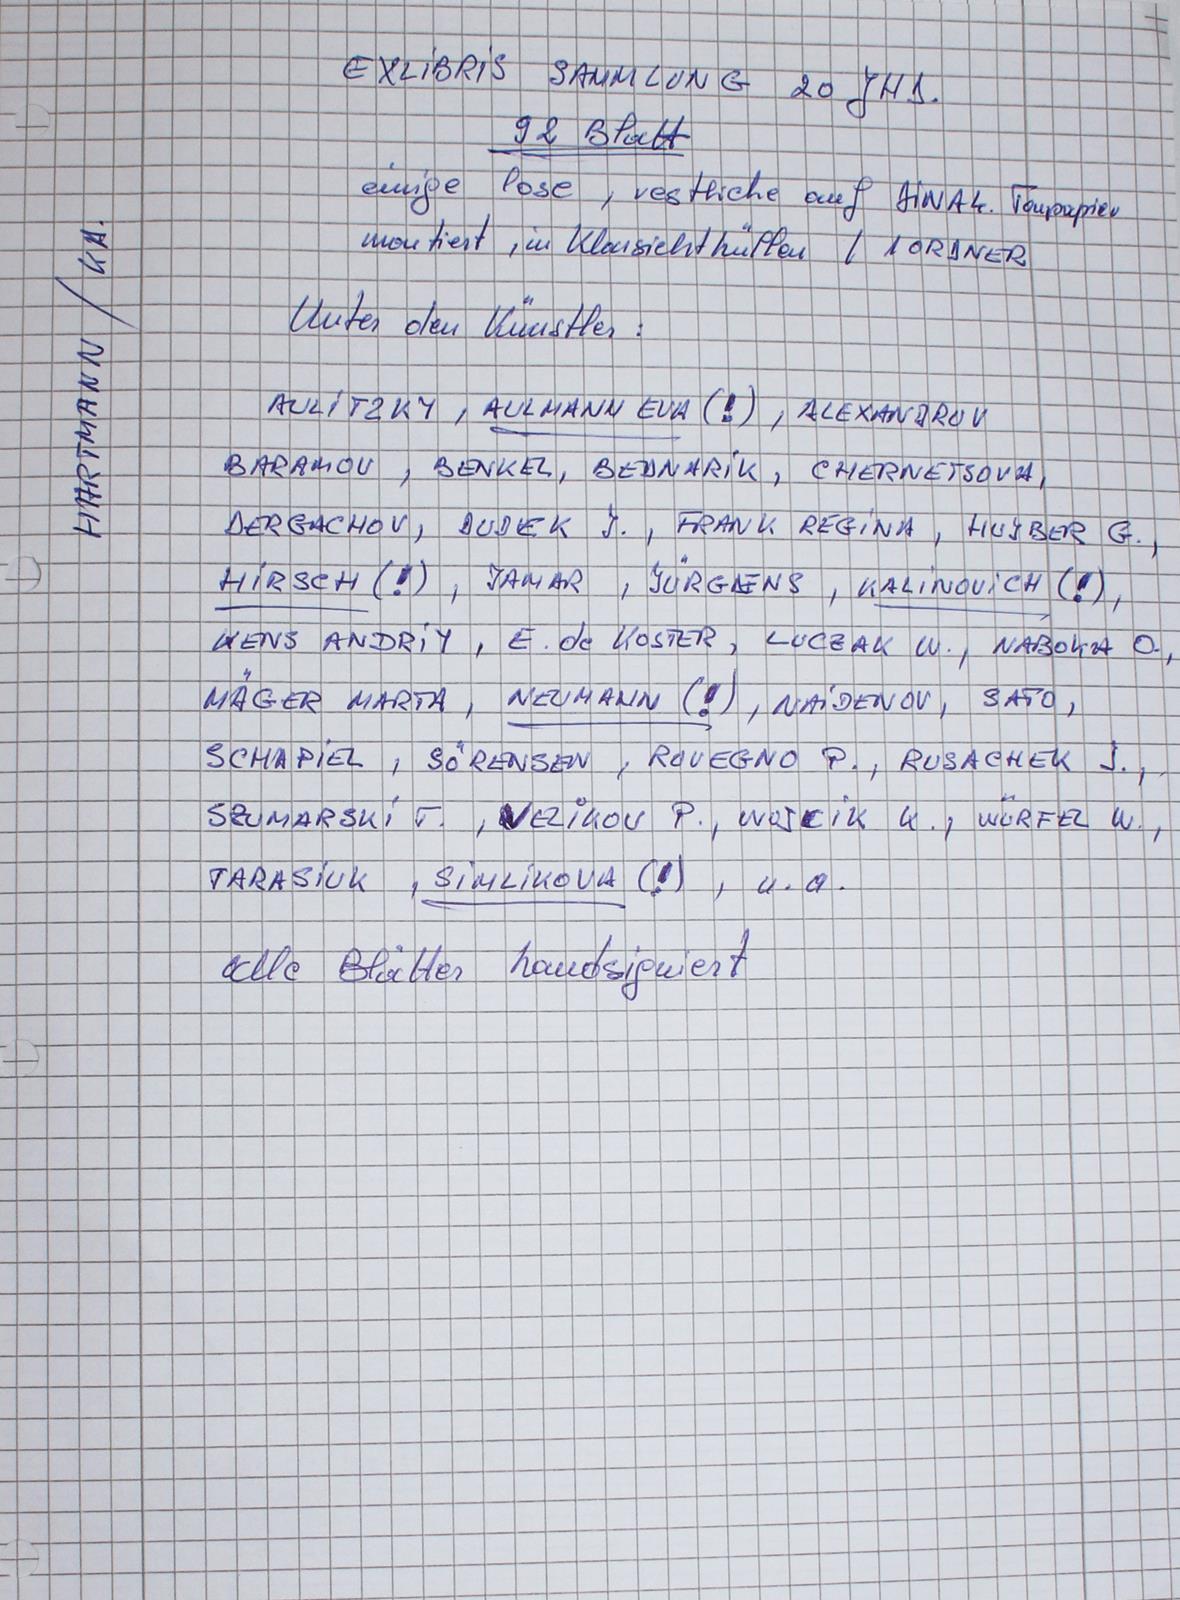 EXLIBRIS SAMMLUNG 20 JHD.
92 Blatt
einige lose, restliche auf DINA4. Tonpapier
montiert, in Klarsichthüllen / 1 ORDNER
HARTMANN / KA.
Unter den Künstler:
AULITZKY, AULMANN EVA (!), ALEXANDROV
BARAMOV, BENKEL, BEDNARIK, CHERNETSOVA,
DERGACHOV, DUDEK J., FRANK REGINA, HUYBER G.,
HIRSCH (!), JAMAR, JÜRGENS, KALINOVICH (!),
KENS ANDRIY, E. de KOSTER, LUCZAK W., NABOKA O.,
MÄGER MARTA, NEUMANN (!), NAIDENOV, SATO,
SCHAPIEL, SÖRENSEN, ROVEGNO P., RUSACHEK J.,
SZUMARSKI T., VELIKOV P., WOJCIK K., WÜRFEL W.,
TARASIUK, SIMLIKOVA (!), u.a.
alle Blätter handsigniert